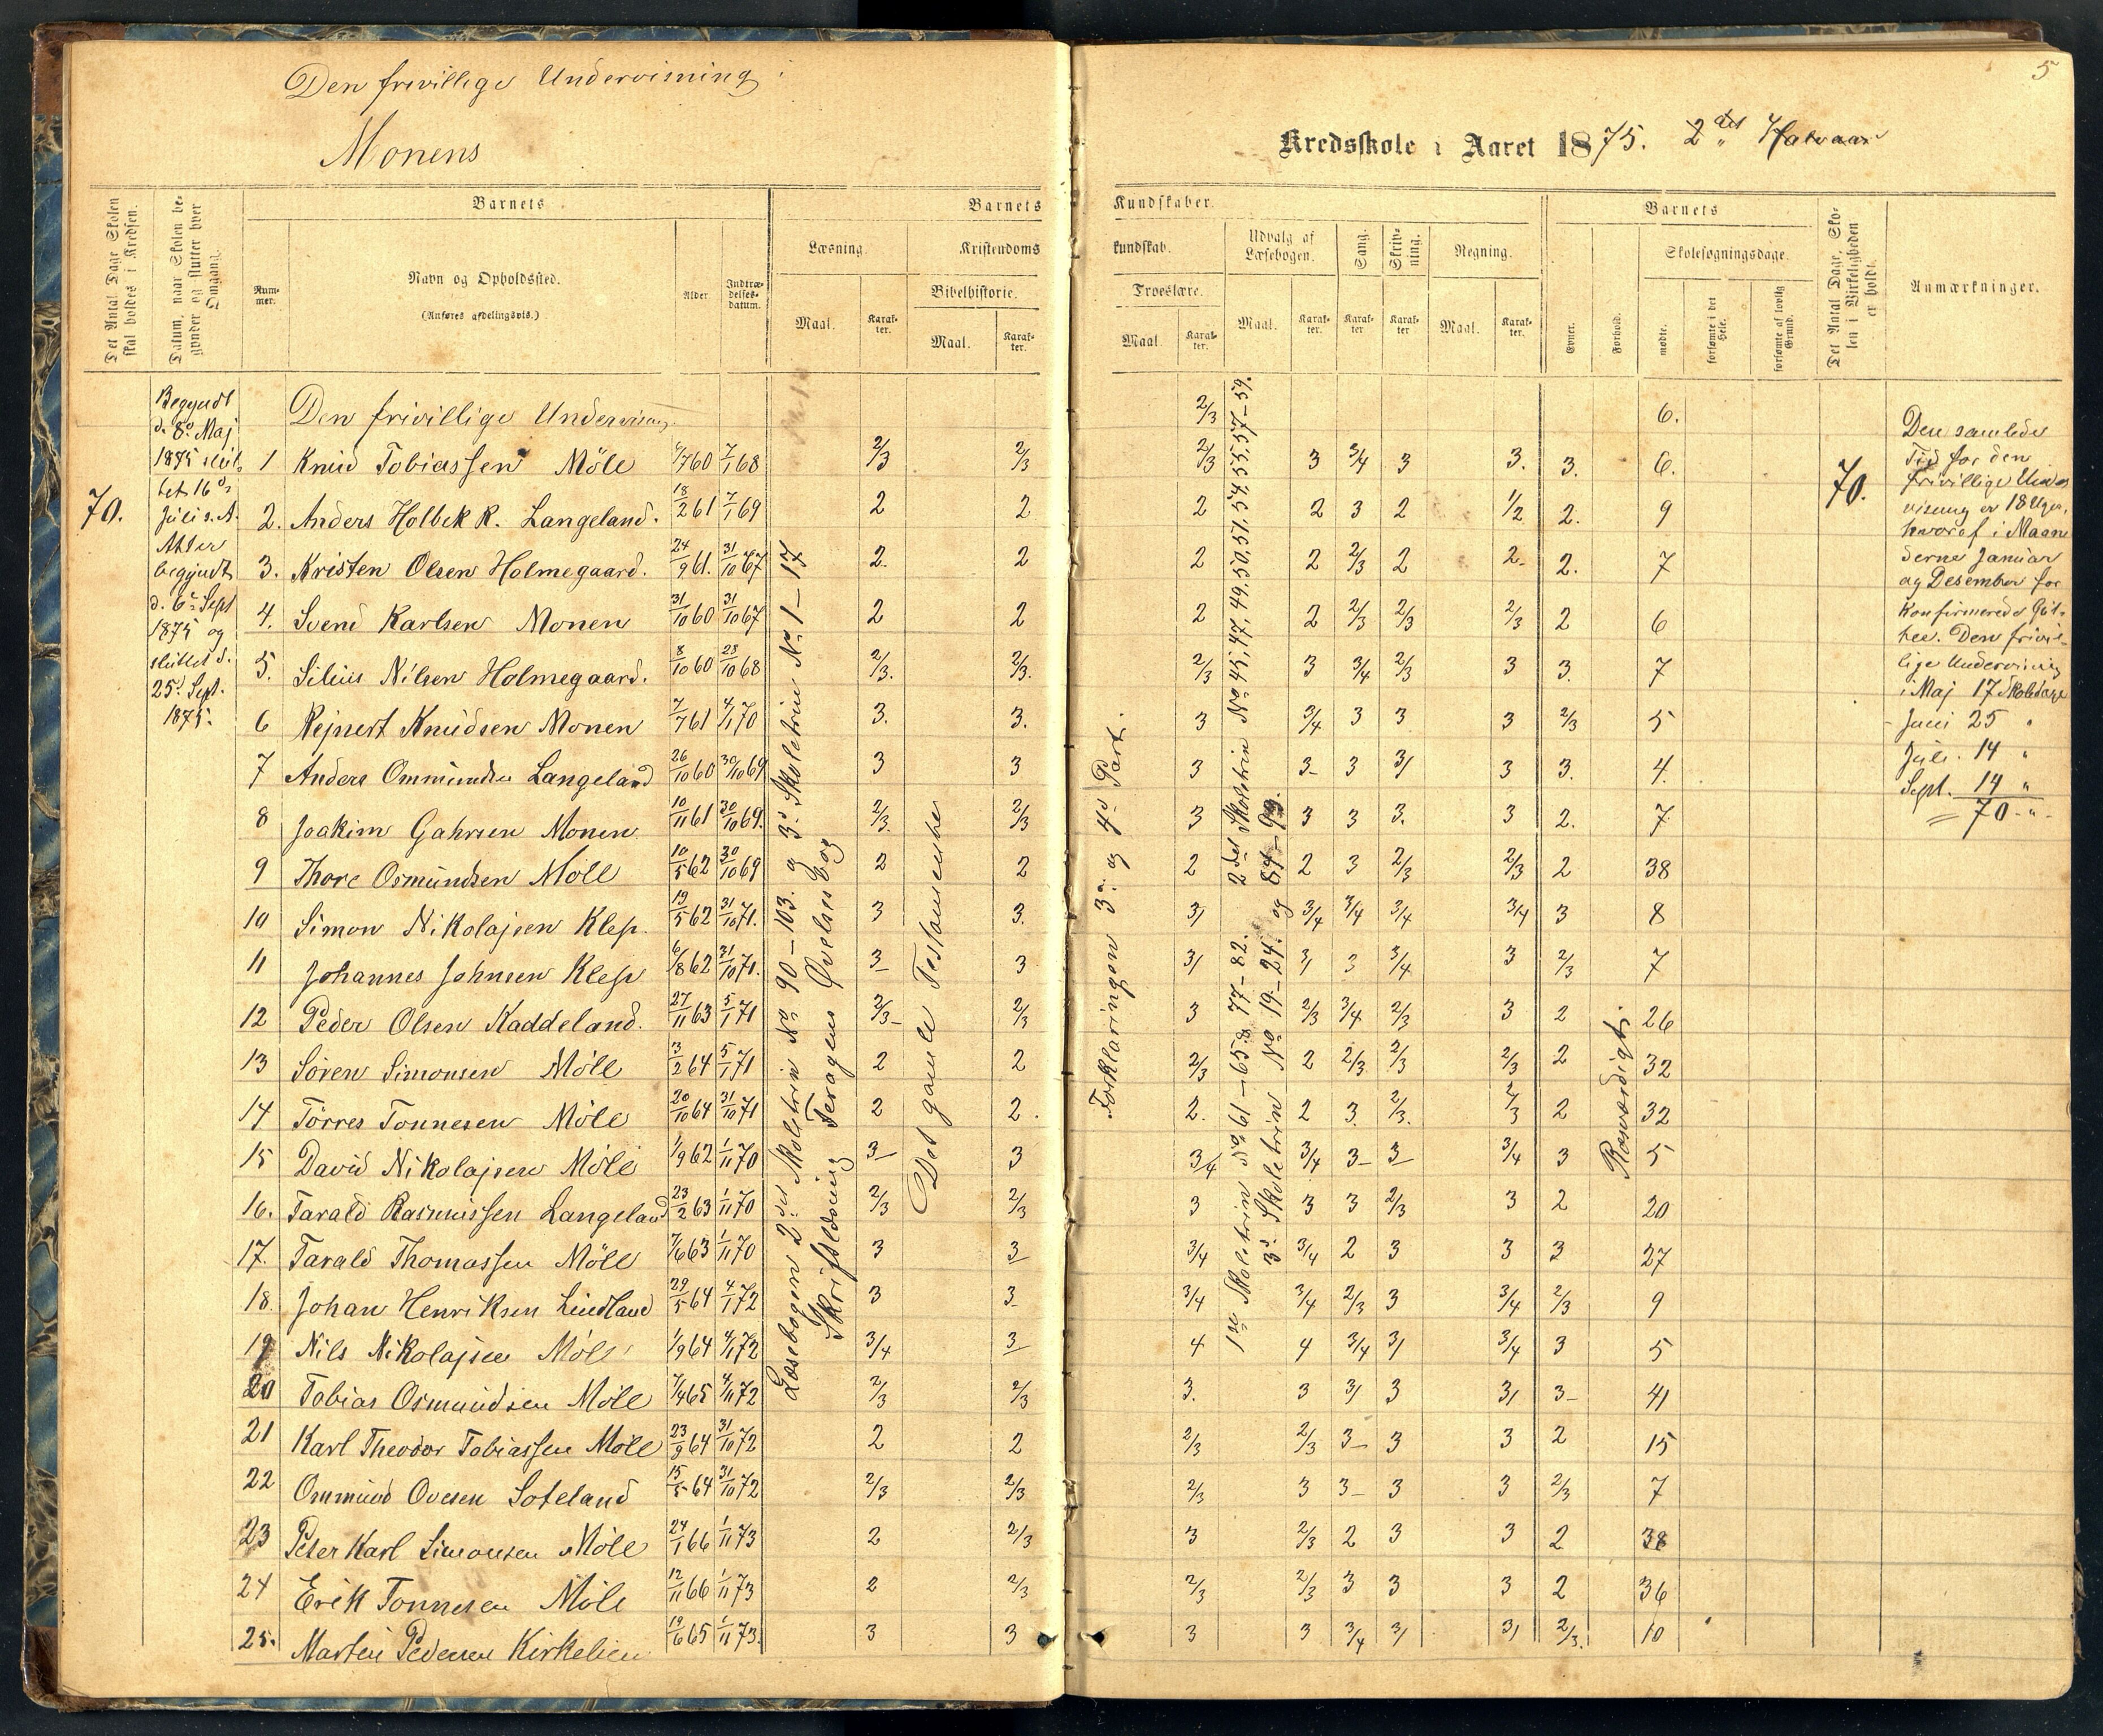 Den frivillige Undervisning
Monens
5
Kredsskole i Aaret 1875. 2det Halvaar
Det Antal Dage Skolen skal holdes i Kredsen.
Datum, naar Skolen begynder og slutter hver Omgang.
Barnets
Nummer.
Navn og Opholdssted.
(Anføres afdelingsvis.)
Alder.
Indtrædelsesdatum.
Barnets
Læsning.
Maal.
Karakter.
Kristendoms
Bibelhistorie.
Maal.
Karakter.
Kundskaber.
kundskab.
Troeslære.
Maal.
Karakter.
Udvalg af Læsebogen.
Maal.
Karakter.
Sang.
Karakter
Skrivning.
Karakter.
Regning.
Maal.
Karakter.
Barnets
Evner.
Forhold.
Skolesøgningsdage.
mødte.
forsømte i det Hele.
forsømte af lovlig Grund.
Det Antal Dage, Skolen i Virkeligheden er holdt.
Anmærkninger.
70.
Begyndt
d. 8de Maj
1875 slut-
tet 16de
Juli s. A.
Atter
begyndt
d. 6te Sept
1875 og
sluttet d.
25d Sept.
1875.
Den frivillige Undervisning 2/3 6.
1 Knud Tobiassen Möle 6/7 60 7/1 68 2/3 2/3 2/3 3 3/4 3 3. 3. 6.
2. Anders Holbek R. Langeland. 18/2 61 7/1 69 2 2 2 2 3 2 1/2 2. 9
3. Kristen Olsen Holmegaard. 24/9 61. 31/10 67 2. 2 2 2 2/3 2 2- 2. 7
4. Svend Karlsen Monen 31/10 60 31/10 67 2 2 2 2 2/3 2/3 2/3 2 6
5. Silius Nilsen Holmegaard. 8/10 60 28/10 68 2/3. 2/3. 2/3 3 3/4 2/3 3 3. 7
6 Rejnert Knudsen Monen 7/7 61 4/1 70 3. 3. 3 3/4 3 3 3 2/3 5
7 Anders Ommundsen Langeland 26/10 60 30/10 69 3 3 3 3- 3 3/ 3 3. 4.
8 Joakim Gahrsen Monen 10/11 61 30/10 69. 2/3. 2/3 3 3 3 3. 3 2. 7
9 Thore Osmundsen Möle 10/5 62 30/10 69 2 2 2 2 3 2/3 2/3 2 38
10 Simon Nikolajsen Klep. 19/5 62 31/10 71. 3 3. 3/ 3/4 3/4 3/4 3/4 3 8
11 Johannes Johnsen Klep 6/8 62 31/10 71. 3- 3 3/ 3/ 3 3/4 3 2/3 7
12 Peder Olsen Kaddeland. 27/11 63 5/1 71 2/3- 2/3 3 2/3 3/4 2/3 3 2 26
13 Sören Simonsen Möle 3/2 64 5/1 71 2 2 2/3 2 2/3 2/3 2/3 2 32
14 Törres Tonnesen Möle 20/10 64 31/10 71 2 2. 2. 2 3. 2/3. 2/3 2 32
15 David Nikolajsen Möle 1/9 62 1/11 70 3- 3 3/4 3/4 3- 3- 3/4 3 5
16. Tarald Rasmussen Langeland 23/2 63 1/11 70 2/3 2/3 3 3 3 2/3 3 2 20
17. Tarald Thomassen Möle 7/6 63 1/11 70 3 3- 3/4 3/4 2 3 3 3 27
18. Johan Henriksen Lindland 29/5 64 4/1 72 3 3- 3/4 3/4 2/3 3 3/4 2/3 9
19 Nils Nikolajsen Möle 1/9 64 4/1 72 3/4 3- 4 4 3/4 3/ 3/4 3 5
20 Tobias Osmundsen Möle 7/4 65 4/11 72 2/3 2/3 3. 3 3/ 3 3/ 3- 41
21 Karl Theodor Tobiassen Möle 23/9 64 31/10 72 2 2 2/3 2/3 3- 3 3 2 15
22 Ommund Ovesen Soteland 15/5 64 31/10 72 2/3 2/3 2/3 3 3- 3 3 2/3 7
23 Peter Karl Simonsen Möle 24/1 66 1/11 73 2 2/3 3 2/3 2 3 3 2 38
24 Erik Tonnesen Möle 12/11 66 1/11 73 2 2/3 2/3 2/3 3 3 3 2 36
25. Martin Pedersen Kirkelien 19/6 65 1/11 73. 3 3 3 3 3/4 3/ 3/ 2/3. 10
Læsebogen 2det Skoletrin No 90-103. og 3d. Skoletrin No 1-17
Skriftlæsning Feragens Øvelses Bog
Det gamle Testamente
Forklaringen 3die og 4d Part.
1ste Skoletrin No 61-65 & 77-82. 2det Skoletrin No 45, 47, 49, 50, 51, 54, 55, 57-59.
3d. Skoletrin No 19-24. og 84-99.
Rosværdigt.
70.
Den samlede
Tid for den
frivillige Under
visning er 18 Uger,
hvoraf i Maane
derne Januar
og Desember for
Konfirmerede Gut-
ter. Den frivil-
lige Undervisning
i Maj 17 Skoledage
- Juni 25 "
Juli. 14 "
Sept. 14 "
70 - " -